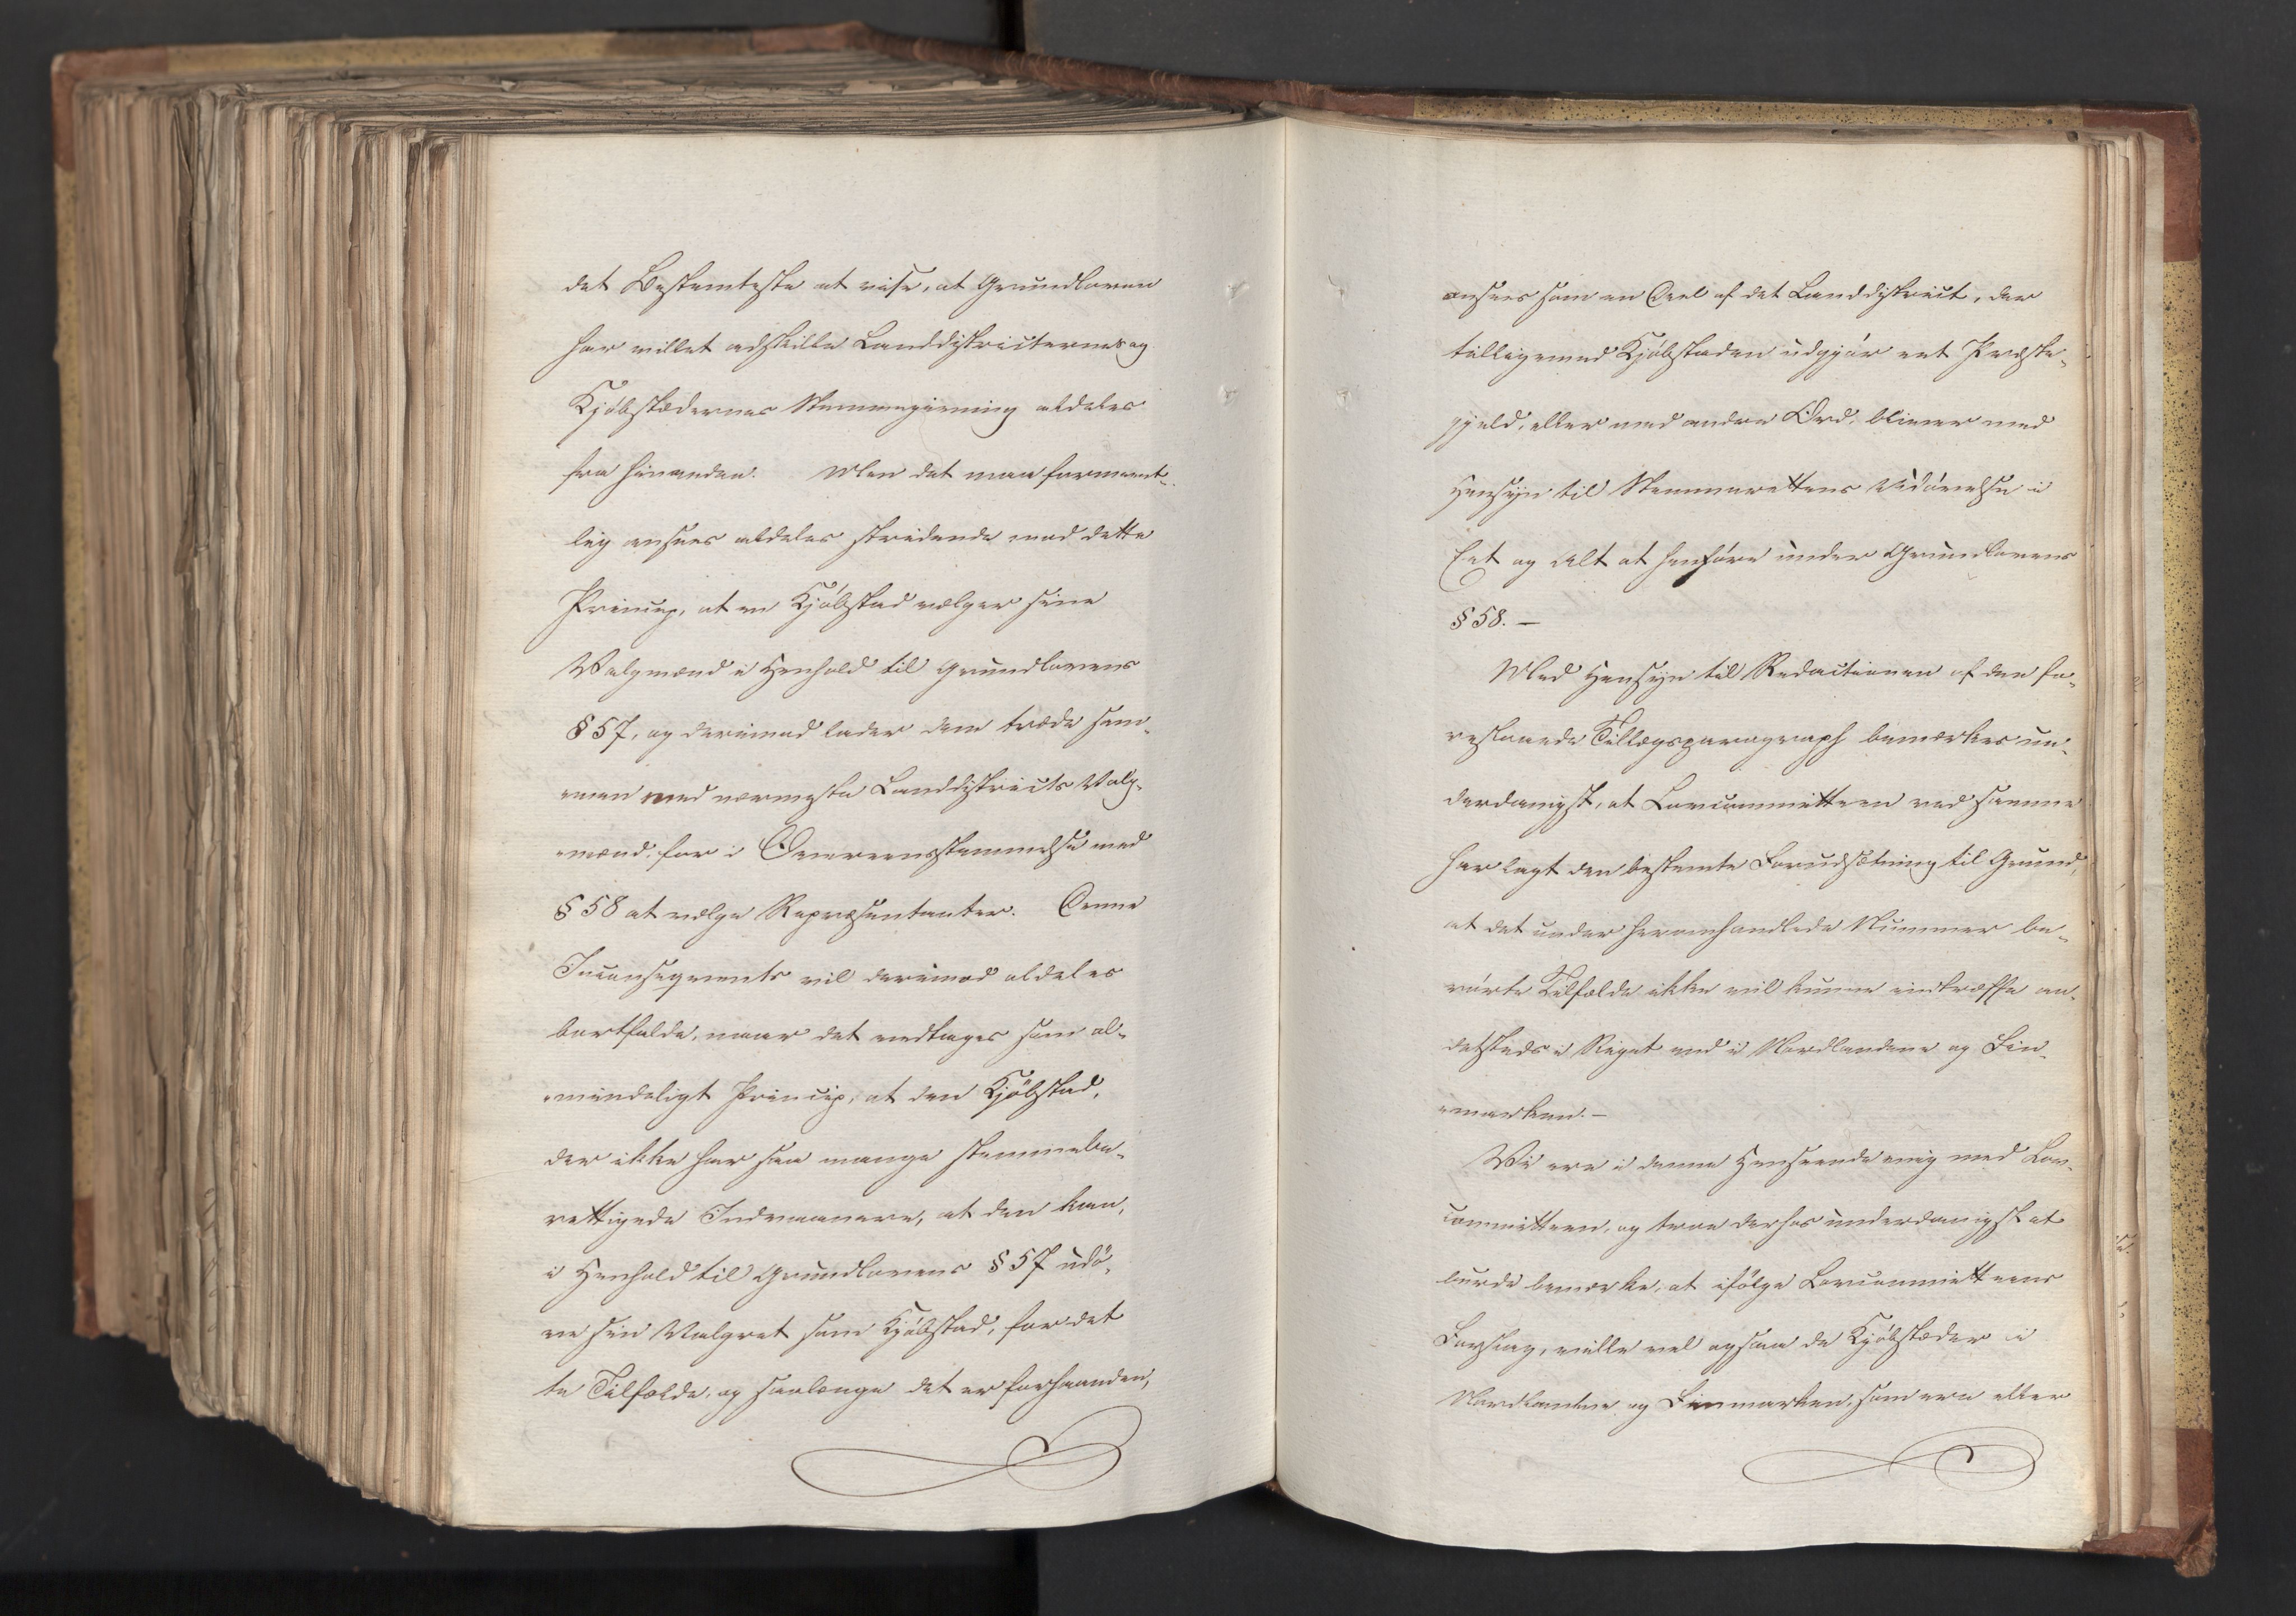 det Bestemteste at vise, at Grundloven
har villet adskille Landdistricternes og
Kjøbstædernes Stemmegivning aldeles
fra hinanden. Men det maa forment-
lig ansees aldeles stridende mod dette
Princip, at en Kjøbstad vælger sine
Valgmænd i Henhold til Grundlovens
§ 57, og derimod lader dem træde sam-
men med nærmeste Landdistricts Valg-
mænd, for i Overeensstemmelse med
§ 58 at vælge Repræsentanter. Denne
Inconseqvents vil derimod aldeles
bortfalde, naar det vedtages som al-
mindeligt Princip, at den Kjøbstad,
der ikke har saa mange stemmebe-
rettigede Indvaanere, at den kan,
i Henhold til Grundlovens § 57 udø-
ve sin Valgret som Kjøbstad, for det-
te Tilfælde, og saalænge det er forhaanden,
ansees som en Deel af det Landdistrict, der
tilligemed Kjøbstaden udgjør eet Præste-
gjeld, eller med andre Ord, bliver med
Hensyn til Stemmerettens Udøvelse i
Eet og Alt at henføre under Grundlovens
§ 58. –
Med Hensyn til Redactionen af den fo-
reslaaede Tillægsparagraph bemærkes un-
derdanigst, at Lovcommitteen ved samme
har lagt den bestemte Forudsætning til Grund,
at det under heromhandlede Nummer be-
rørte Tilfælde ikke vil kunne indtræffe an-
detsteds i Riget end i Nordlandene og Fin-
marken. –
Vi ere i denne Henseende enig med Lov-
committeen, og troe derhos underdanigst at
burde bemærke, at ifølge Lovcommitteens
Forslag, ville vel ogsaa de Kjøbstæder i
Nordlandene og Finmarken, som ere eller